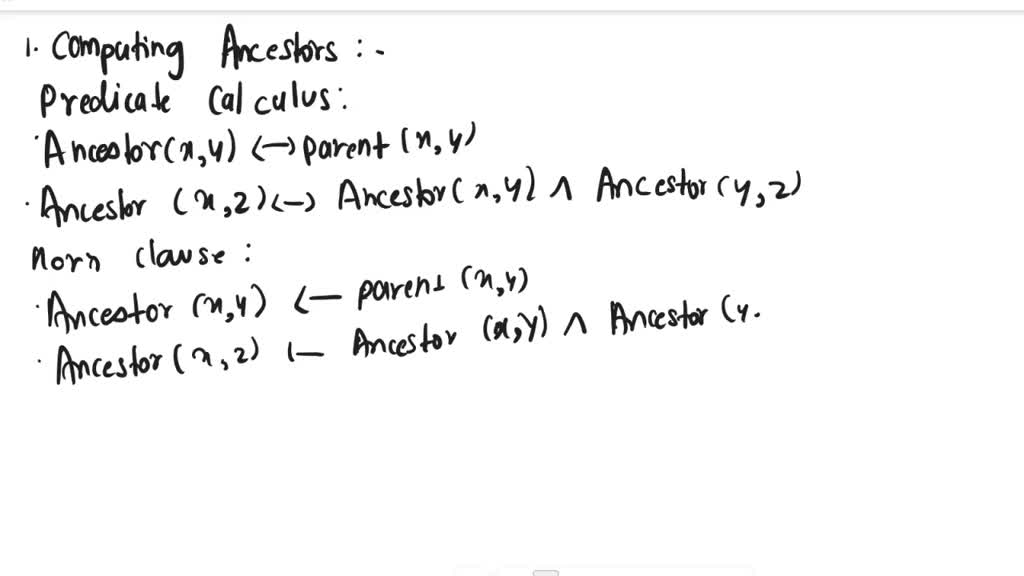 1. Computing Ancestors :-
Predicate Calculus:
·Ancestor(x,y) <-> parent (x,y)
·Ancestor (x,z) <-> Ancestor(x,y) ∧ Ancestor (y,z)
Horn Clause :
·Ancestor (x,y) <- parent (x,y)
·Ancestor (x,z) <- Ancestor (x,y) ∧ Ancestor (y.